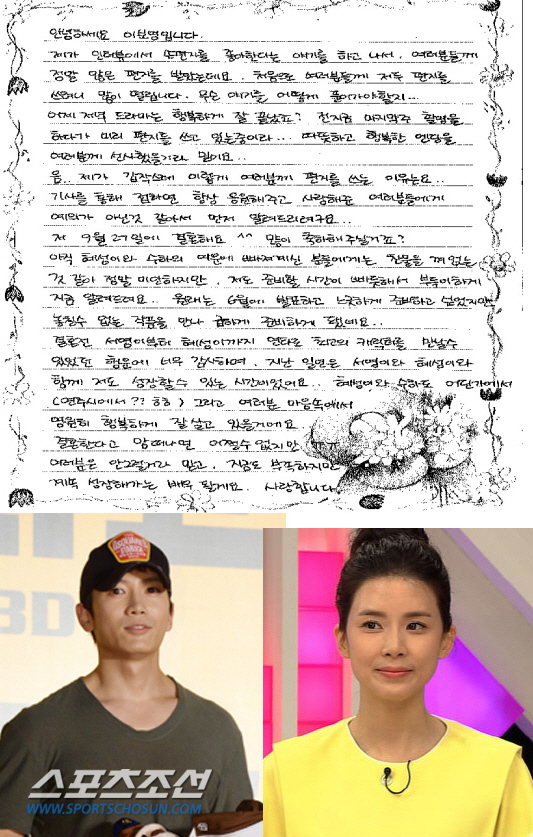 안녕하세요 이보영입니다.
제가 인터뷰에서 손편지를 좋아한다는 얘기를 하고 나서, 여러분들께
정말 많은 편지를 받았는데요. 처음으로 여러분들께 저도 편지를
쓰려니 많이 떨립니다. 무슨 얘기를 어떻게 풀어가야할지...
어제 저녁 드라마는 행복하게 잘 끝났죠? 전 지금 마지막주 촬영을
하다가 미리 편지를 쓰고 있는중이라... 따뜻하고 행복한 엔딩을
여러분께 선사했을거라 믿어요..
음.. 제가 갑작스레 이렇게 여러분께 편지를 쓰는 이유는요..
기사를 통해 전하면 항상 응원해주고 사랑해준 여러분들에게
예의가 아닌것 같아서 먼저 알려드리려구요..
저 9월 27일에 결혼해요 ^^ 많이 축하해주실거죠?
아직 혜성이와 수하의 여운에 빠져계신 분들에게는 찬물을 껴 없는
것 같아 정말 미안하지만, 저도 준비할 시간이 빠듯해서 부득이하게
지금 알려드려요.. 원래는 6월에 발표하고 느긋하게 준비하고 싶었지만
놓칠수 없는 작품을 만나 급하게 준비하게 됐네요..
결혼전 서영이부터 혜성이까지 연타로 최고의 캐릭터를 만날수
있었던 행운에 너무 감사하며, 지난 일년은 서영이와 혜성이와
함께 저도 성장할수 있는 시간이었어요.. 혜성이와 수하도 어딘가에서
(연주시에서?? ㅎㅎ) 그리고 여러분 마음속에서
영원히 행복하게 잘 살고 있을거에요
결혼한다고 맘 떠나면 어쩔수 없지만 ㅠㅠ
여러분은 안그럴거라 믿고, 지금도 부족하지만
계속 성장해가는 배우 될게요. 사랑합니다
3D
스포츠조선
WWW.SPORTSCHOSUN.COM